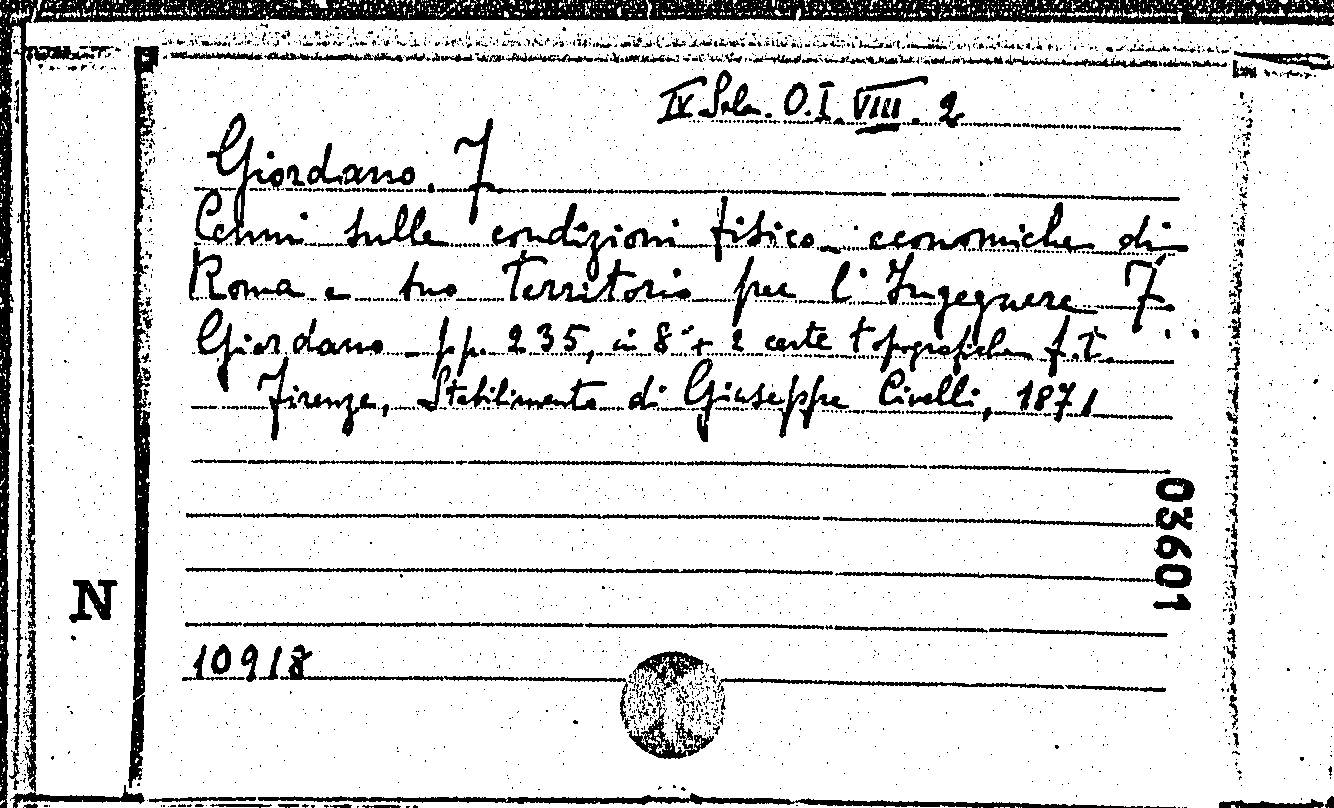 IV Sala. O. I. VIII. 2
Giordano. F
Cenni sulle condizioni fisico-economiche di
Roma e suo territorio per l'Ingegnere F.
Giordano - pp. 235, in 8° + 2 carte topografiche f.t.
Firenze, Stabilimento di Giuseppe Civelli, 1871
03601
N
10918